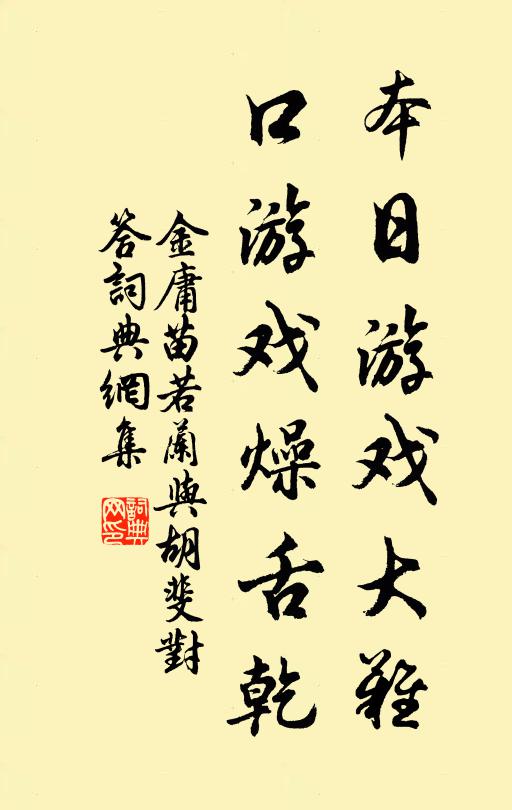 本日游戏大难
口游戏燥舌乾
金庸苗若蘭與胡斐對
答詞典網集
詞典
网印